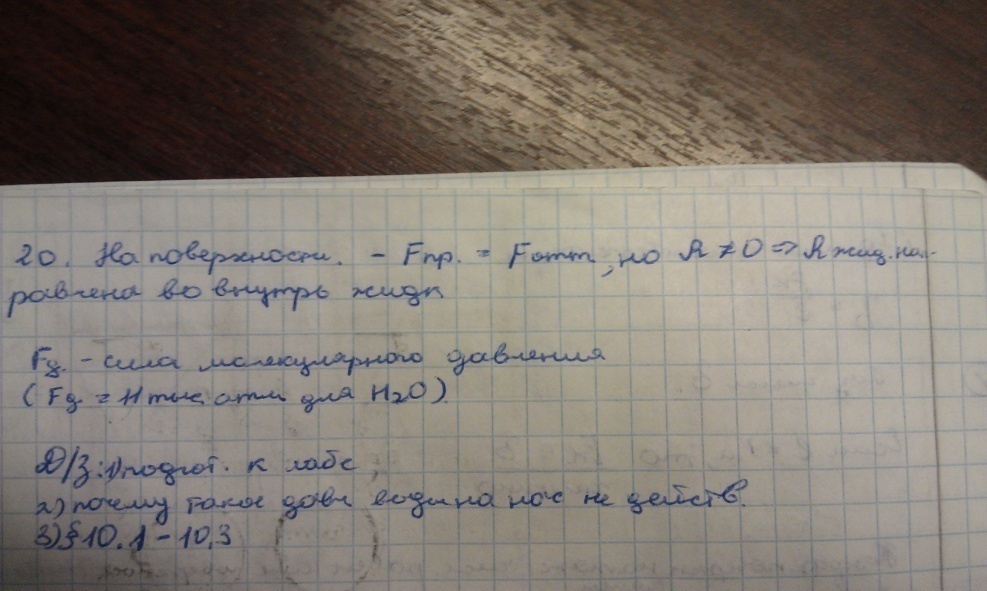 20. На поверхности. - Fпр. = Fотт, но R ≠ 0 => R жид. нап-
равлена во внутрь жидк
Fд. - сила молекулярного давления
(Fд = 11 тыс. атм для H₂O)
Д/З: 1) подгот. к лабе
2) почему такое давл воды на нас не действ.
3) § 10.1 - 10.3